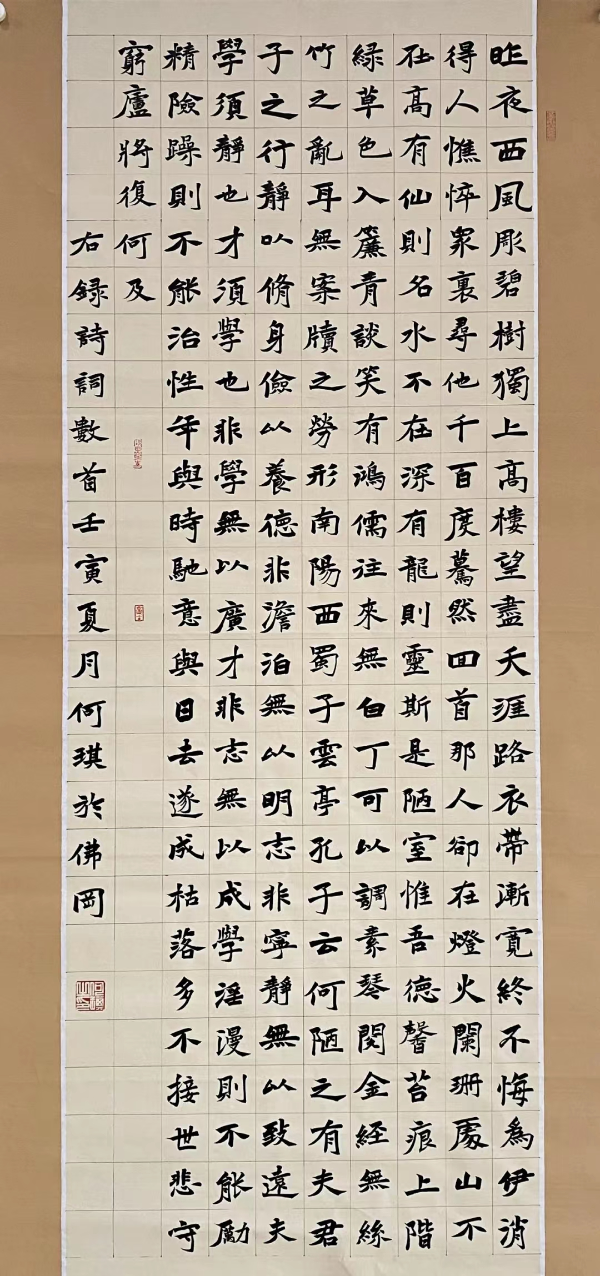 昨夜西風彫碧樹獨上高樓望盡天涯路衣帶漸寬終不悔為伊消
得人憔悴眾裏尋他千百度驀然回首那人卻在燈火闌珊處山不
在高有仙則名水不在深有龍則靈斯是陋室惟吾德馨苔痕上階
綠草色入簾青談笑有鴻儒往來無白丁可以調素琴閱金經無絲
竹之亂耳無案牘之勞形南陽西蜀子雲亭孔子云何陋之有夫君
子之行靜以脩身儉以養德非澹泊無以明志非寧靜無以致遠夫
學須靜也才須學也非學無以廣才非志無以成學淫漫則不能勵
精險躁則不能治性年與時馳意與日去遂成枯落多不接世悲守
窮廬將復何及
右錄詩詞數首壬寅夏月何琪於佛岡